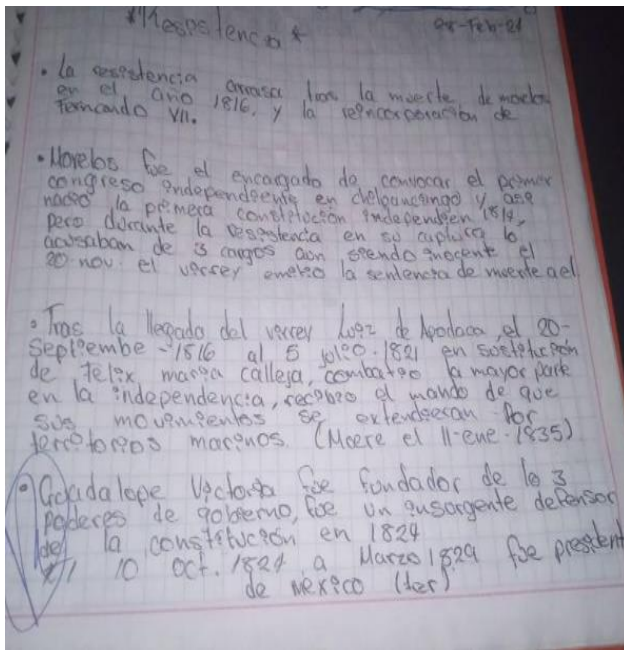 *Resistencia*
08-Feb-21
• La resistencia arrasa tras la muerte de morelos
en el año 1816. y la reincorporación de
Fernando VII.
• Morelos fue el encargado de convocar el primer
congreso independiente en chilpancingo y asi
nacio la primera constitución independien 1814,
pero durante la resistencia en su captura lo
acusaban de 3 cargos aun siendo inocente el
20-nov. el virrey emitio la sentencia de muerte a el
• Tras la llegado del virrey Luiz de Apodaca, el 20-
Septiembre - 1816 al 5 julio. 1821 en sustitución
de Felix maria calleja, combatio la mayor parte
en la independencia, recibio el mando de que
sus movimientos se extendieran por
territorios marinos. (Muere el 11-ene-1835)
• Guadalope Victoria fue fundador de lo 3
poderes de gobierno, fue un insorgente defensor
de la constitución en 1824
10 oct. 1824 a Marzo 1829 fue president
de mexico (1er)